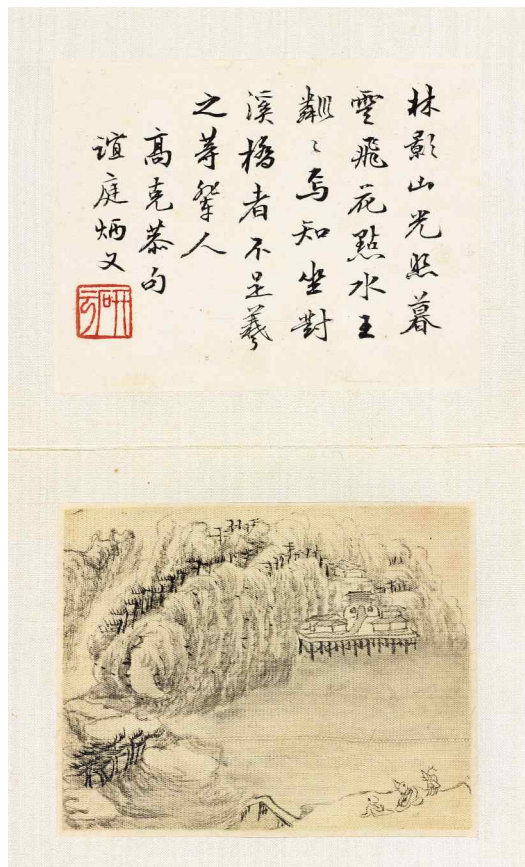 林影山光照暮
雲飛花點水玉
粼〻焉知坐對
溪橋者不是羲
之等輩人
高克恭句
誼庭炳文
研云